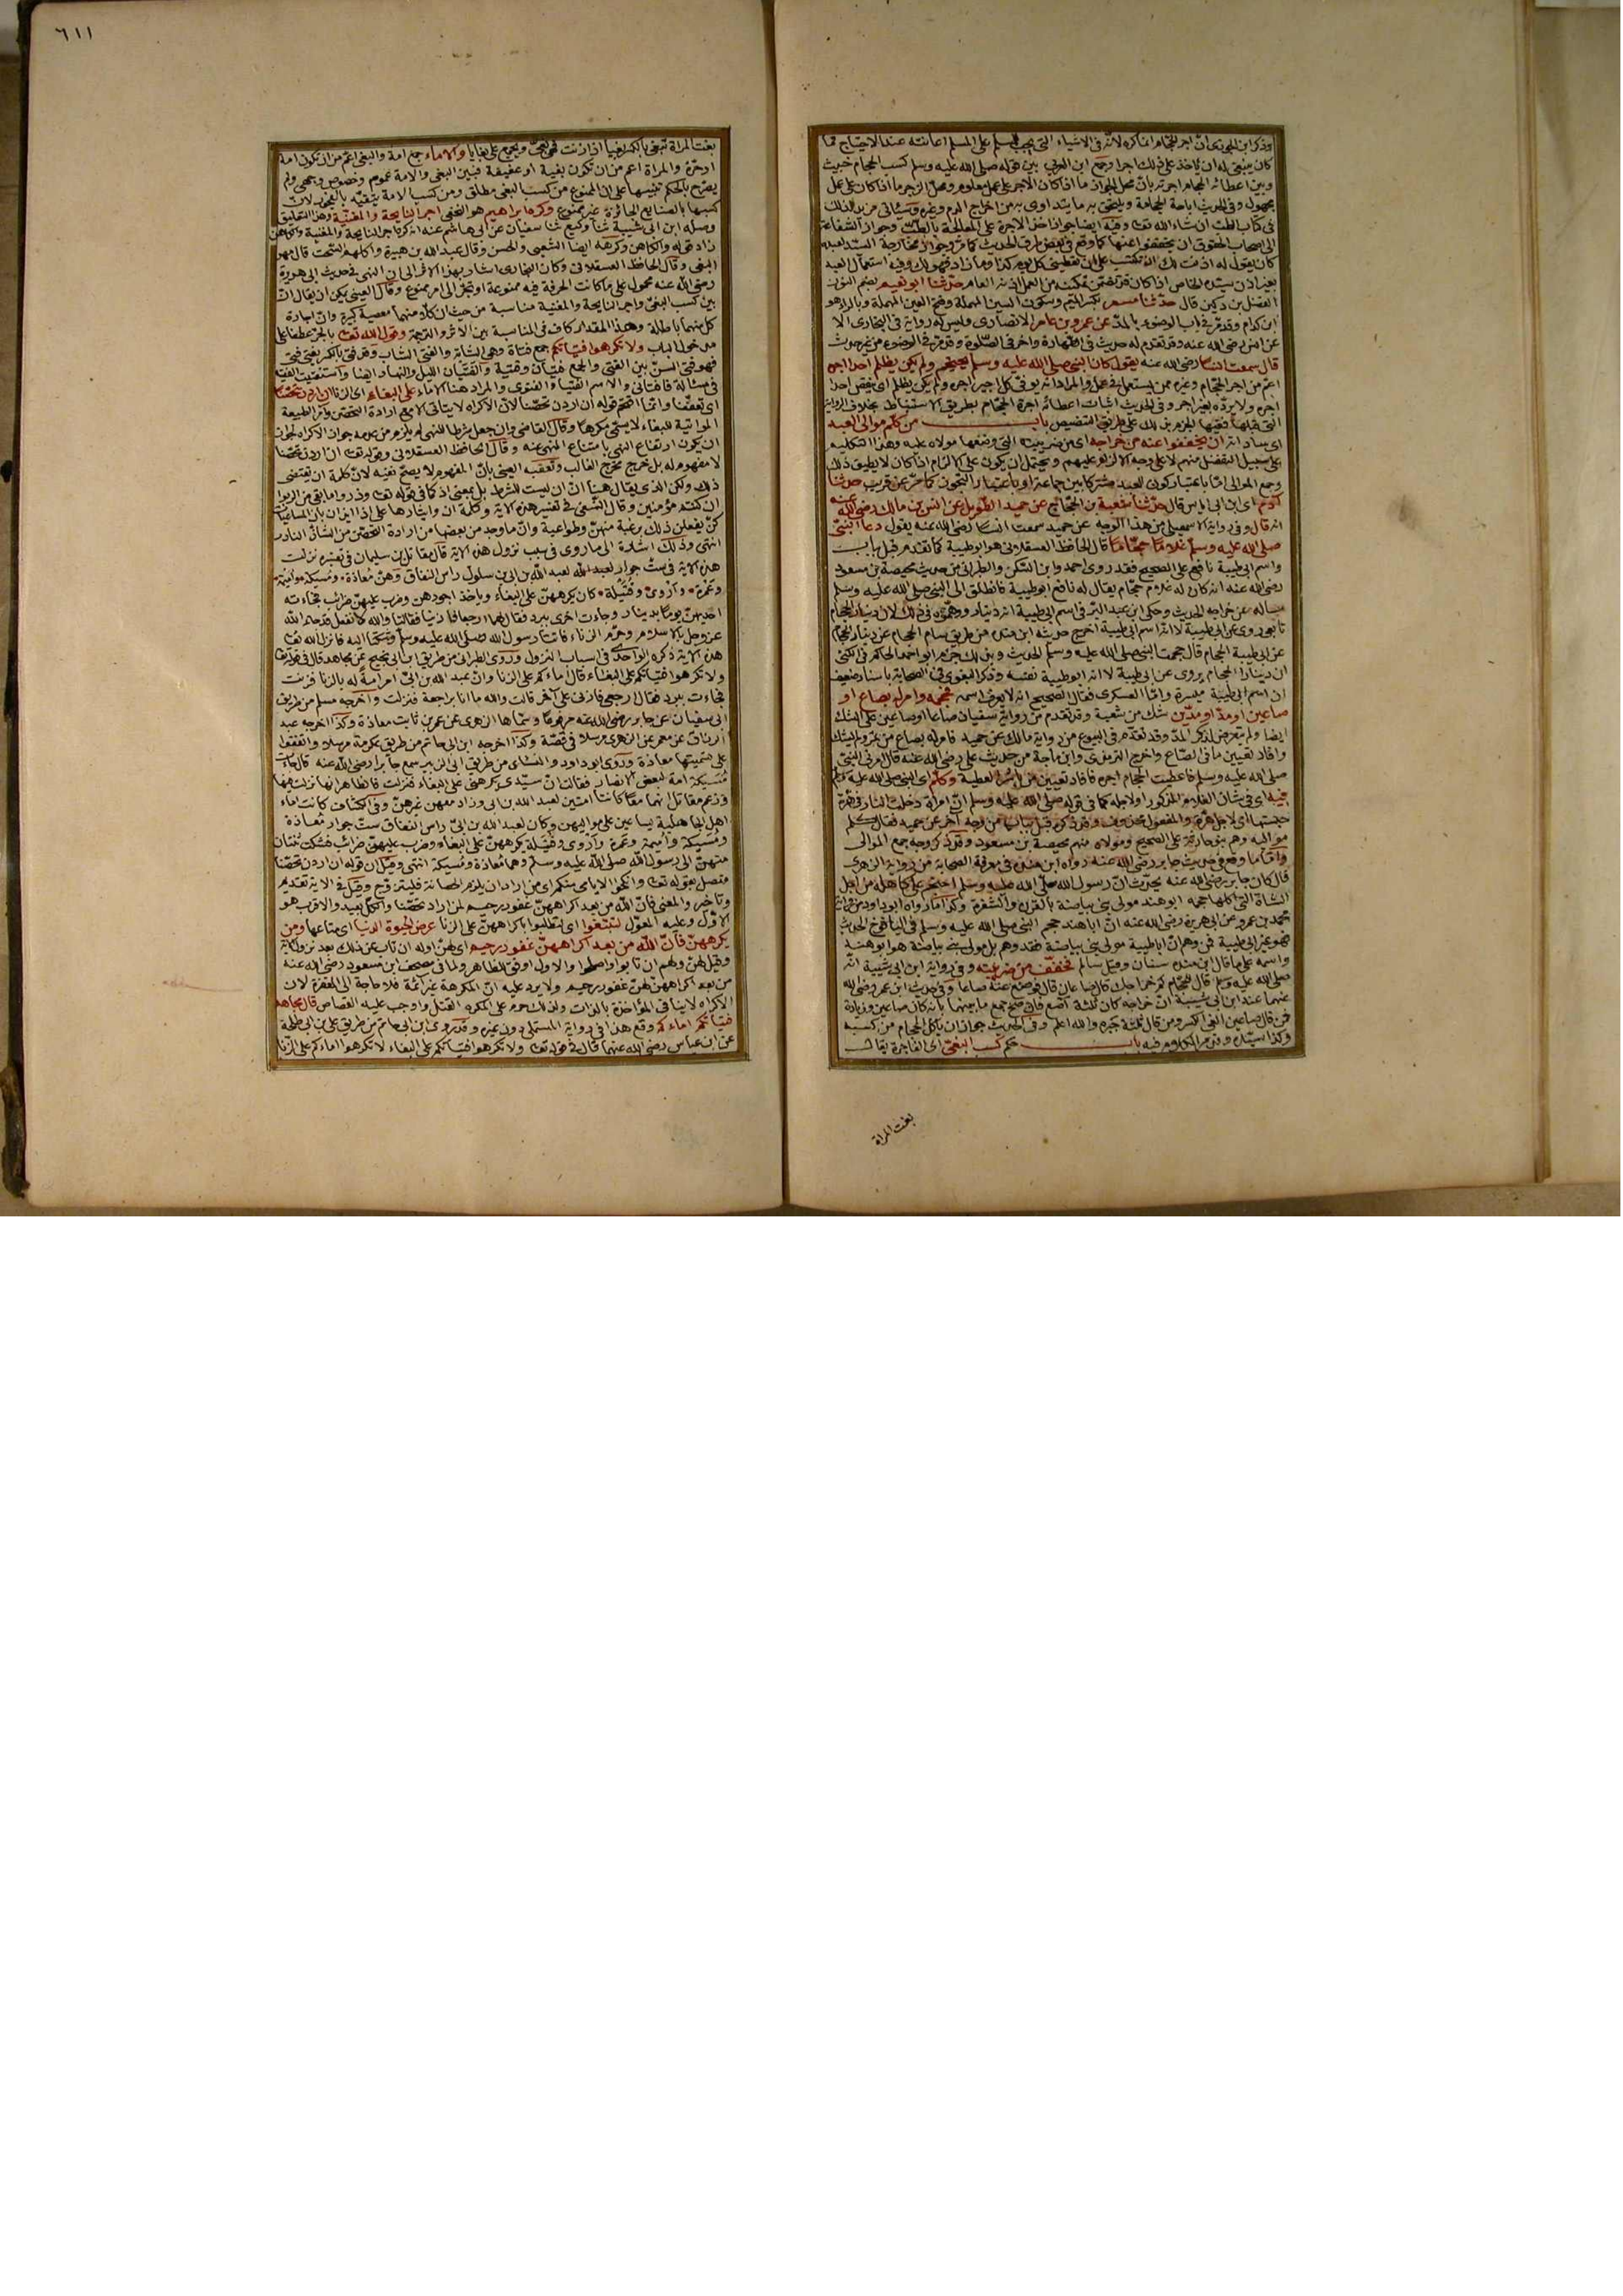 وذكر ابن الجوزي ان اجر الحجام انما كره لانه من الاشياء التي يجب للمسلم على المسلم اعانته عند الاحتياج فما
كان ينبغي له ان ياخذ على ذلك اجرا وجمع ابن العربي بين قوله صلى الله عليه وسلم كسب الحجام خبيث
وبين اعطائه الحجام اجرته بان محل الجواز ما اذا كان الاجر على عمل معلوم ومحل الزجر ما اذا كان على عمل
مجهول وفي الحديث اباحة الحجامة ويلتحق به ما يتداوى به من اخراج الدم وغيره وسياتي مزيد لذلك
في كتاب الطب ان شاء الله تعالى وفيه ايضا جواز اخذ الاجرة على المعالجة بالطب وجواز الشفاعة
الى اصحاب الحقوق ان يخففوا عنها كما وقع في بعض طرق الحديث كما مر وجواز مخارجة السيد لعبده
كان يقول له اذنت لك ان تكتسب على ان تعطيني كل يوم كذا وما زاد فهو لك وفيه استعمال العبد
بغير اذن سيده الخاص اذا كان قد تضمن تمكينه من العمل اذنه العام حدثنا ابو نعيم بضم النون
الفضل بن دكين قال حدثنا مسعر بكسر الميم وسكون السين المهملة وفتح العين المهملة وبالراء هو
ابن كدام وقد مر في باب الوضوء بالمد عن عمرو بن عامر الانصاري وليس له رواية في البخاري الا
عن انس رضي الله عنه وقد تقدم له حديث في الطهارة واخر في الصلوة وقد مر في الوضوء من غير حدث
قال سمعت انسا رضي الله عنه يقول كان النبي صلى الله عليه وسلم يحتجم ولم يكن يظلم احدا اجره
اعم من اجر الحجام وغيره ممن يستعمله في عمل والمراد انه يوفي كل اجير اجره ولم يكن يظلم اى ينقص احدا
اجره ولا يرده بغير اجر وفي الحديث اثبات اعطائه اجرة الحجام بطريق الاستنباط بخلاف الرواية
التي قبلها ففيها الجزم بذلك على طريق التنصيص باب من كلم موالي العبد
اى ساداته ان يخففوا عنه من خراجه اى من ضريبته التي وضعها مولاه عليه وهذا التكليم
على سبيل التفضل منهم لا على وجه الالزام عليهم ويحتمل ان يكون على الالزام اذا كان لا يطيق ذلك
وجمع الموالي اما باعتبار كون العبد مشتركا بين جماعة او باعتبار التجوز كما مر عن قريب حدثنا
ادم اى ابن ابي اياس قال حدثنا شعبة بن الحجاج عن حميد الطويل عن انس بن مالك رضي الله عنه
انه قال وفي رواية الاسمعيلي من هذا الوجه عن حميد سمعت انسا رضي الله عنه يقول دعا النبي
صلى الله عليه وسلم غلاما حجاما قال الحافظ العسقلاني هو ابو طيبة كما تقدم قبل باب
واسم ابي طيبة نافع على الصحيح فقد روى احمد وابن السكن والطبراني من حديث محيصة بن مسعود
رضي الله عنه انه كان له غلام حجام يقال له نافع ابو طيبة فانطلق الى النبي صلى الله عليه وسلم
يساله عن خراجه الحديث وحكى ابن عبد البر في اسم ابي طيبة انه دينار ووهموه في ذلك لان دينار الحجام
تابعي روى عن ابي طيبة لا انه اسم ابي طيبة اخرج حديثه ابن منده من طريق بسام الحجام عن دينار الحجام
عن ابي طيبة الحجام قال حجمت النبي صلى الله عليه وسلم الحديث وبذلك جزم ابو احمد الحاكم في الكنى
ان دينارا الحجام يروى عن ابي طيبة لا انه ابو طيبة نفسه وذكر البغوي في الصحابة باسناد ضعيف
ان اسم ابي طيبة ميسرة واما العسكري فقال الصحيح انه لا يعرف اسمه فحجمه وامر له بصاع او
صاعين او مد او مدين شك من شعبة وقد تقدم من رواية سفيان صاعا او صاعين على الشك
ايضا ولم يتعرض لذكر المد وقد تقدم في البيوع من رواية مالك عن حميد فامر له بصاع من تمر ولم يشك
وافاد تعيين ما في الصاع واخرج الترمذي وابن ماجة من حديث علي رضي الله عنه قال امرني النبي
صلى الله عليه وسلم فاعطيت الحجام اجره فافاد تعيين من باشر العطية وكلم اى النبي صلى الله عليه وسلم
فيه اى في شان الغلام المذكور او لاجله كما في قوله صلى الله عليه وسلم ان امرأة دخلت النار في هرة
حبستها اى لاجل هرة والمفعول محذوف وقد ذكره قبل بباب من وجه آخر عن حميد فقال كلم
مواليه وهم بنو حارثة على الصحيح ومولاه منهم محيصة بن مسعود وقد ذكر وجه جمع الموالي
واما ما وقع في حديث جابر رضي الله عنه رواه ابن منده في معرفة الصحابة من رواية الزهري
قال كان جابر رضي الله عنه يحدث ان رسول الله صلى الله عليه وسلم احتجم على كاهله من اجل
الشاة التي اكلها حجمه ابو هند مولى بني بياضة بالقرن والشفرة وكذا ما رواه ابو داود من رواية
محمد بن عمرو عن ابي هريرة رضي الله عنه ان ابا هند حجم النبي صلى الله عليه وسلم في اليافوخ الحديث
فهو غير ابي طيبة فمن وهم ان ابا طيبة مولى بني بياضة فقد وهم بل مولى بني بياضة هو ابو هند
واسمه على ما قال ابن منده سنان وقيل سالم فخفف من ضريبته وفي رواية ابن ابي شيبة انه
صلى الله عليه وسلم قال للحجام كم خراجك قال صاعان قال فوضع عنه صاعا وفي حديث ابن عمر رضي الله
عنهما عند ابن ابي شيبة ان خراجه كان ثلثة آصع فان صح جمع ما بينهما بانه كان صاعين وزيادة
فمن قال صاعين الغى الكسر ومن قال ثلثة جبره والله اعلم وفي الحديث جواز ان ياكل الحجام من كسبه
وكذا سيده وقد مر الكلام فيه باب حكم كسب البغي اى الفاجرة يقال
بغت المرأة
٦١١
بغت المرأة تبغي بالكسر بغيا اذا زنت فهي بغي ويجمع على بغايا والاماء جمع امة والبغي اعم من ان يكون امة
او حرة والمرأة اعم من ان تكون بغية او عفيفة فبين البغي والامة عموم وخصوص وجهي ولم
يصرح بالحكم تنبيها على ان الممنوع من كسب البغي مطلق ومن كسب الامة بتقييد بالفجور لان
كسبها بالصنايع الجائزة غير ممنوع وكره ابراهيم هو النخعي اجر النايحة والمغنية وهذا التعليق
وصله ابن ابي شيبة ثنا وكيع ثنا سفيان عن ابي هاشم عنه انه كره اجر النايحة والمغنية والكاهن
زاد قوله والكاهن وكرهه ايضا الشعبي والحسن وقال عبد الله بن هبيرة واكلهم السحت قال مهر
البغي وقال الحافظ العسقلاني وكان البخاري اشار بهذا الاثر الى ان النهي في حديث ابي هريرة
رضي الله عنه محمول على ما كانت الحرفة فيه ممنوعة او تجر الى امر ممنوع وقال العيني يمكن ان يقال ان
بين كسب البغي واجر النايحة والمغنية مناسبة من حيث ان كلا منهما معصية كبيرة وان اجارة
كل منهما باطلة وهذا المقدار كاف في المناسبة بين الاثر والترجمة وقول الله تعالى بالجر عطفا على
مدخول الباب ولا تكرهوا فتياتكم جمع فتاة وهي الشابة والفتى الشاب وقد فتى بالكسر يفتى فتى
فهو فتي السن بين الفتى والجمع فتيان وفتية والفتيان الليل والنهار ايضا واستفتيت الفقيه
في مسالة فافتاني والاسم الفتيا والفتوى والمراد هنا الاماء على البغاء اى الزنا ان اردن تحصنا
اى تعففا وانما اقحم قوله ان اردن تحصنا لان الاكراه لا يتاتى الا مع ارادة التحصن وآمر الطيعة
المواتية للبغاء لا يسمى مكرها وقال القاضي وان جعل شرطا للنهي لم يلزم من عدمه جواز الاكراه لجواز
ان يكون ارتفاع النهي بامتناع المنهي عنه وقال الحافظ العسقلاني وقوله تعالى ان اردن تحصنا
لا مفهوم له بل خرج مخرج الغالب وتعقبه العيني بان المفهوم لا يصح نفيه لان كلمة ان تقتضي
ذلك ولكن الذي يقال هنا ان ان ليست للشرط بل بمعنى اذ كما في قوله تعالى وذروا ما بقي من الربوا
ان كنتم مؤمنين وقال النسفي في تفسير هذه الاية وكلمة ان وايثارها على اذا ايذان بان المساعيات
كن يفعلن ذلك برغبة منهن وطواعية وان ما وجد من بعضها من ارادة التحصن من الشاذ النادر
انتهى وذلك اشارة الى ما روى في سبب نزول هذه الاية قال مقاتل بن سليمان في تفسيره نزلت
هذه الاية في ست جوار لعبد الله بن ابي بن سلول راس النفاق وهن معاذة ومسيكة واميمة
وعمرة واروى وقتيلة كان يكرههن على البغاء وياخذ اجورهن وضرب عليهن ضرائب فجاءته
احديهن يوما بدينار وجاءت اخرى ببرد فقال لهما ارجعا فازنيا فقالتا والله لا نفعل قد جاء الله
عز وجل بالاسلام وحرم الزناء فاتتا رسول الله صلى الله عليه وسلم وشكتا اليه فانزل الله تعالى
هذه الاية ذكره الواحدي في اسباب النزول وروى الطبراني من طريق ابن ابي نجيح عن مجاهد قال في قوله تعالى
ولا تكرهوا فتياتكم على البغاء قال اماءكم على الزنا وان عبد الله بن ابي امر امة له بالزنا فزنت
فجاءت ببرد فقال ارجعي فازني على آخر قالت والله ما انا براجعة فنزلت واخرجه مسلم من طريق
ابي سفيان عن جابر رضي الله عنه مرفوعا وسماها الزهري عن عمر بن ثابت معاذة وكذا اخرجه عبد
الرزاق عن معمر عن الزهري مرسلا في قصة وكذا اخرجه ابن ابي حاتم من طريق عكرمة مرسلا واتفقوا
على تسميتها معاذة وروى ابو داود والنسائي من طريق ابي الزبير سمع جابرا رضي الله عنه قال جاءت
مسيكة امة لبعض الانصار فقالت ان سيدي يكرهني على البغاء فنزلت فالظاهر انها نزلت فيهما
وزعم مقاتل انهما معا كانتا امتين لعبد الله بن ابي وزاد معهن غيرهن وفي الكشاف كانت اماء
اهل الجاهلية يساعين على مواليهن وكان لعبد الله بن ابي راس النفاق ست جوار معاذة
ومسيكة واميمة وعمرة واروى وقتيلة يكرههن على البغاء وضرب عليهن ضرائب فشكت ثنتان
منهن الى رسول الله صلى الله عليه وسلم وهما معاذة ومسيكة انتهى وقيل ان قوله ان اردن تحصنا
متصل بقوله تعالى وانكحوا الايامى منكم اى من اراد ان يلزم الحصانة فليتزوج وقيل في الاية تقديم
وتأخير والمعنى فان الله من بعد اكراههن غفور رحيم لمن اراد تحصنا والكل بعيد والاقرب هو
الاول وعليه المعول لتبتغوا اى لتطلبوا باكراههن على الزنا عرض الحيوة الدنيا اى متاعها ومن
يكرههن فان الله من بعد اكراههن غفور رحيم اى لهن اوله ان تاب عن ذلك بعد نزول الاية
وقيل لهن ولهم ان تابوا واصلحوا والاول اوفق للظاهر ولما في مصحف ابن مسعود رضي الله عنه
من بعد اكراههن لهن غفور رحيم ولا يرد عليه ان المكرهة غير آثمة فلا حاجة الى المغفرة لان
الاكراه لا ينافي المؤاخذة بالذات ولذلك حرم على المكره القتل واوجب عليه القصاص قال مجاهد
فتياتكم اماءكم وقع هذا في رواية المستملي دون غيره وقد روى ابن ابي حاتم من طريق علي بن ابي طلحة
عن ابن عباس رضي الله عنهما قال في قوله تعالى ولا تكرهوا فتياتكم على البغاء لا تكرهوا اماءكم على الزنا